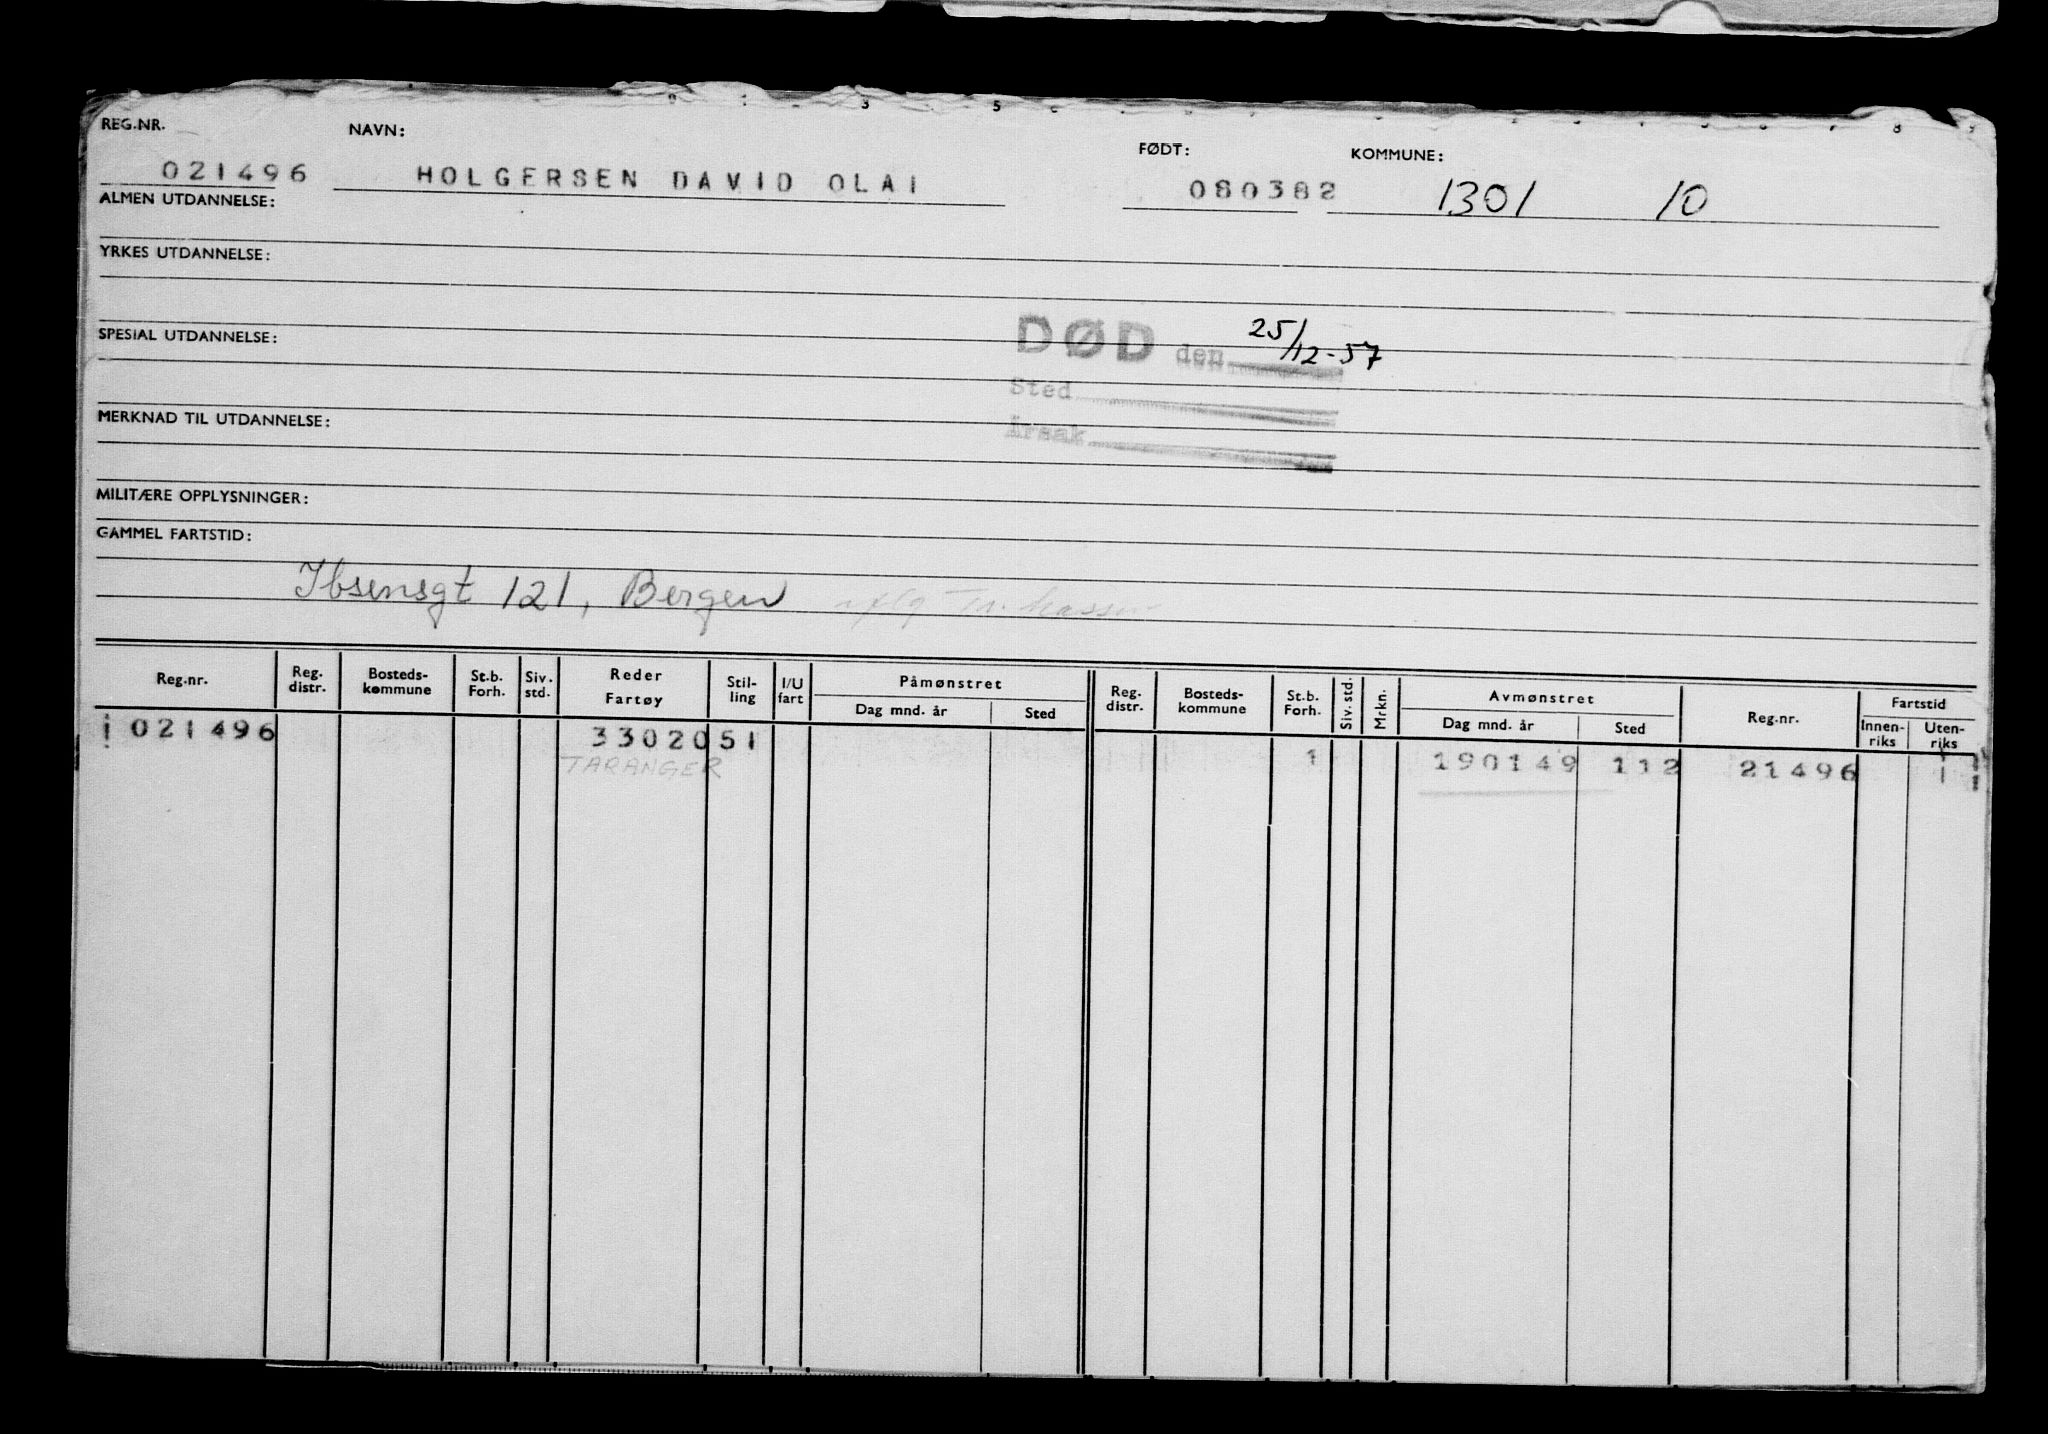 REG.NR. NAVN: FØDT: KOMMUNE:
021496 HOLGERSEN DAVID OLAI 080382 1301 10
ALMEN UTDANNELSE:
YRKES UTDANNELSE:
SPESIAL UTDANNELSE:
DØD den 25/12-57
Sted
Årsak
MERKNAD TIL UTDANNELSE:
MILITÆRE OPPLYSNINGER:
GAMMEL FARTSTID:
Ibsensgt 121, Bergen
Reg.nr. Reg. distr. Bosteds-kommune St.b. Forh. Siv. std. Reder Fartøy Stil-ling I/U fart Påmønstret Dag mnd. år Sted Reg. distr. Bosteds-kommune St.b. Forh. Siv. std. Mrkn. Avmønstret Dag mnd. år Sted Reg.nr. Fartstid Innen-riks Uten-riks
021496 3302051 1 190149 112 21496
TARANGER